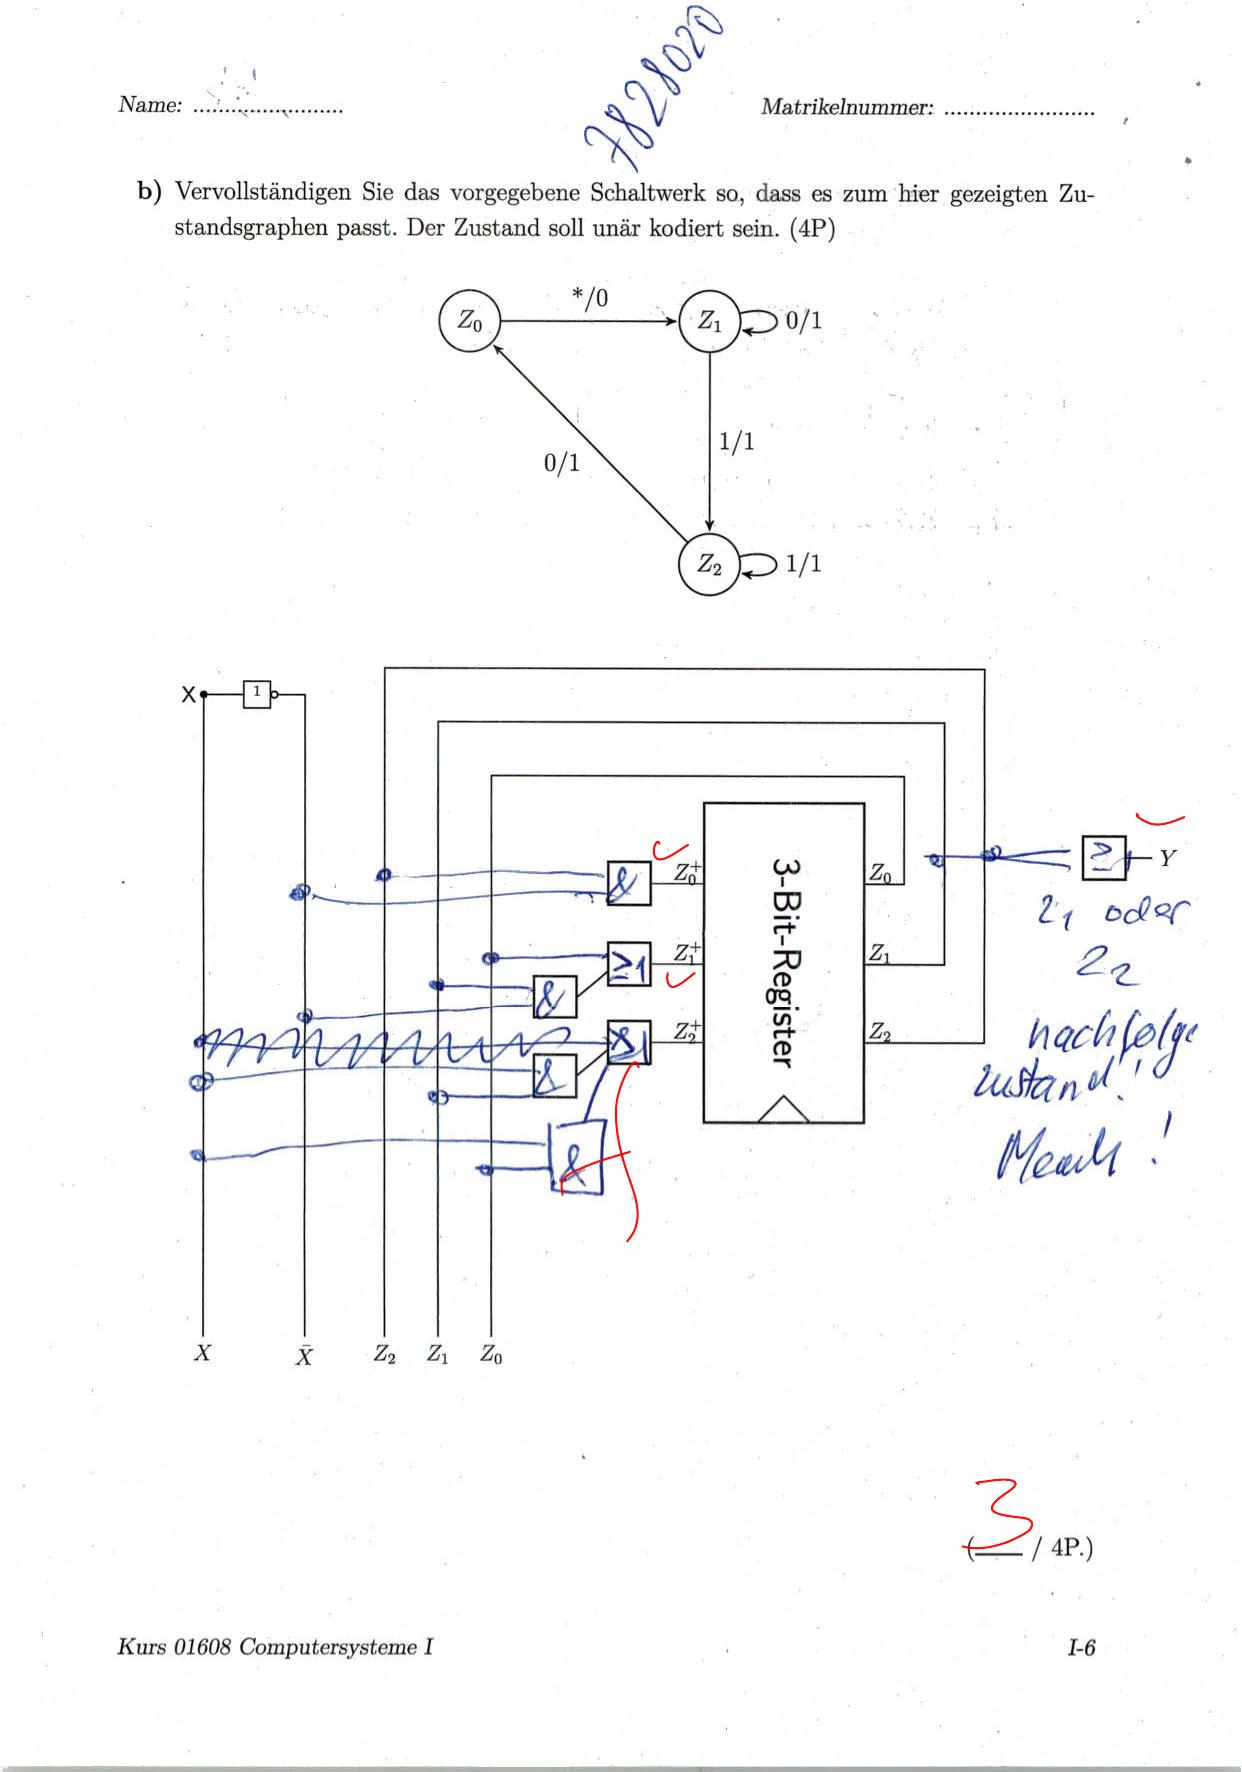 7828020
Name: ........................ Matrikelnummer: ........................
b) Vervollständigen Sie das vorgegebene Schaltwerk so, dass es zum hier gezeigten Zu-
standsgraphen passt. Der Zustand soll unär kodiert sein. (4P)
*/0
Z₀ Z₁ 0/1
1/1
0/1
Z₂ 1/1
X 1
& Z₀⁺ Z₀ ≥ Y
z₁ oder
≥1 Z₁⁺ Z₁
z₂
&
3-Bit-Register
nachfolge
≥1 Z₂⁺ Z₂
&
zustand!
&
!
X X̄ Z₂ Z₁ Z₀
3
(___ / 4P.)
Kurs 01608 Computersysteme I I-6